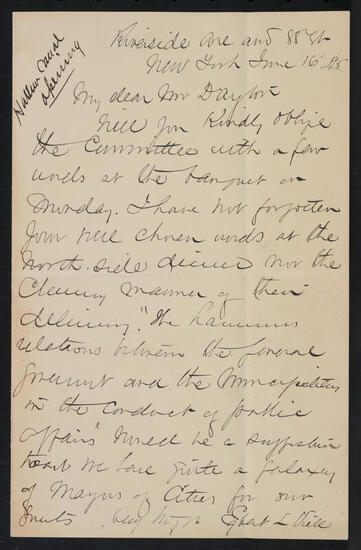 Harlem Canal
opening
Riverside Ave and 88th St
New York June 16 '95
My dear Mr Dayton
Will you kindly oblige
the Committee with a few
words at the banquet on
Monday. I have not forgotten
your well chosen words at the
North-side dinner nor the
charming manner of their
delivery. "The harmonious
relations between the General
Government and the Municipalities
in the conduct of public
affairs" would be a suggestive
toast we have quite a galaxy
of Mayors of Cities for our
guests. Very truly Egbert L Viele